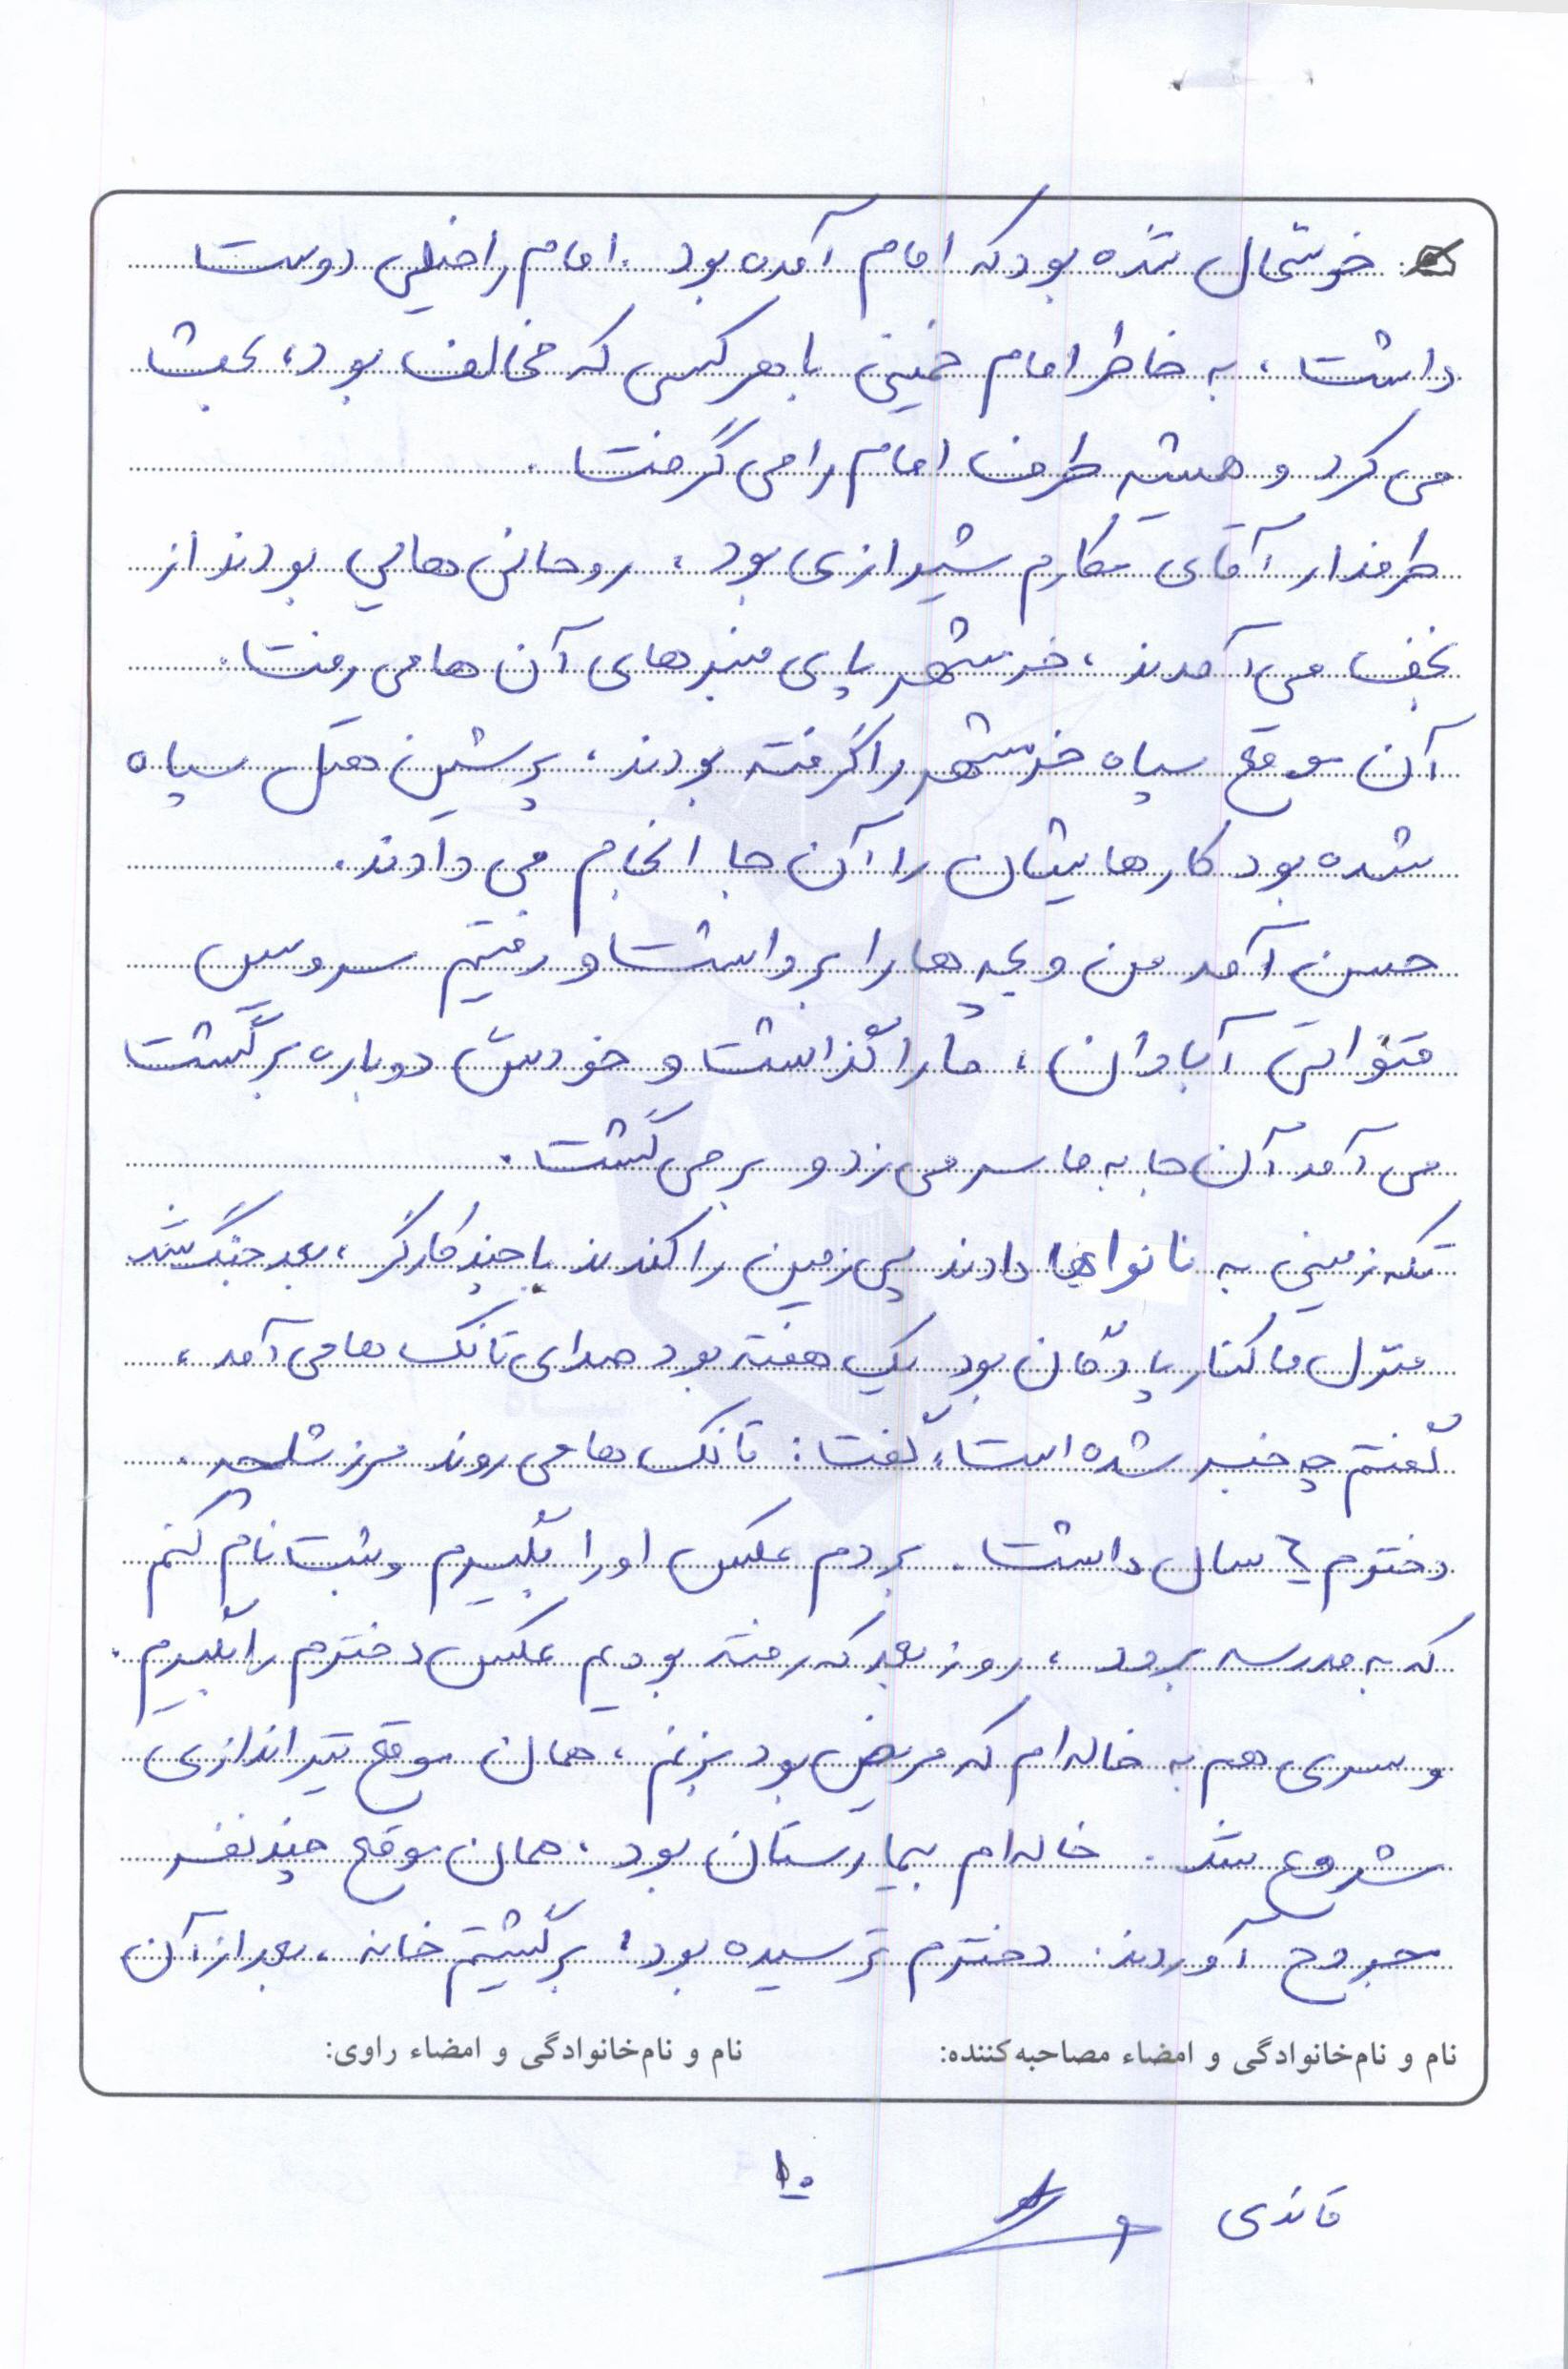 خوشحال شده بود که امام آمده بود. امام را خیلی دوست
داشت، به خاطر امام خمینی با هر کسی که مخالف بود، بحث
می کرد و همیشه طرف امام را می گرفت.
طرفدار آقای مکارم شیرازی بود، روحانی هایی بودند از
نجف می آمدند، خرمشهر پای منبرهای آن ها می رفت.
آن موقع سپاه خرمشهر را گرفته بودند، پرشین هتل سپاه
شده بود کارهایشان را آن جا انجام می دادند.
حسن آمد من و بچه ها را برداشت و رفتیم سرویس
آبادان، ما را گذاشت و خودش دوباره برگشت
می آمد آن جا به ما سر می زد و بر می گشت.
تکه زمینی به نانواها دادند پی زمین را کندند با چند کارگر، بعد جنگ شد
منزل ما کنار پادگان بود یک هفته بود صدای تانک ها می آمد،
گفتم چه خبر شده است، گفت: تانک ها می روند مرز شلمچه.
دخترم ۶ سال داشت. بردم عکس او را بگیرم و ثبت نام کنم
که به مدرسه برود، روز بعد که رفته بودیم عکس دخترم را بگیرم.
و سری هم به خاله ام که مریض بود بزنم، همان موقع تیراندازی
شروع شد. خاله ام بیمارستان بود، همان موقع چند نفر
مجروح آوردند. دخترم ترسیده بود، برگشتیم خانه، بعد از آن
نام و نام‌خانوادگی و امضاء مصاحبه‌کننده: نام و نام‌خانوادگی و امضاء راوی:
۱۰
قائدی